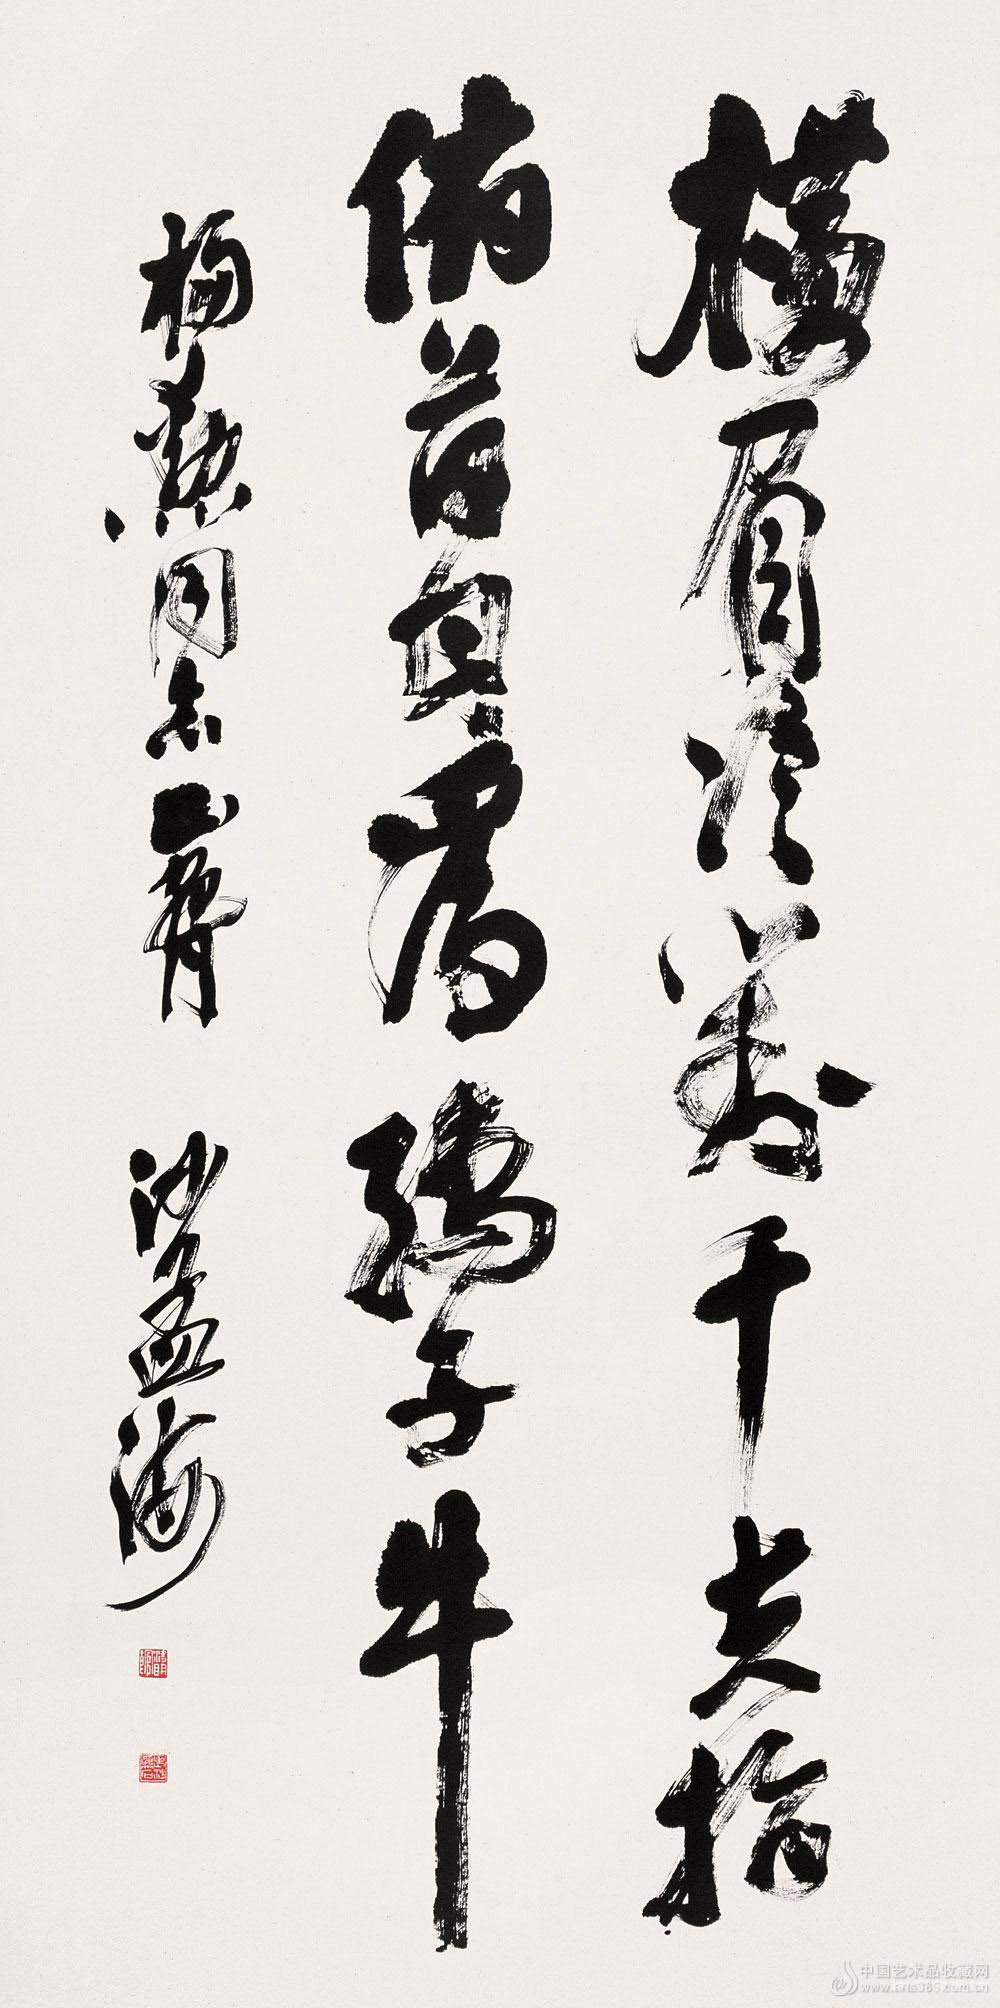 橫眉冷對千夫指
俯首甘為孺子牛
同志 沙孟海
中国艺术品收藏网
www.arts365.com.cn